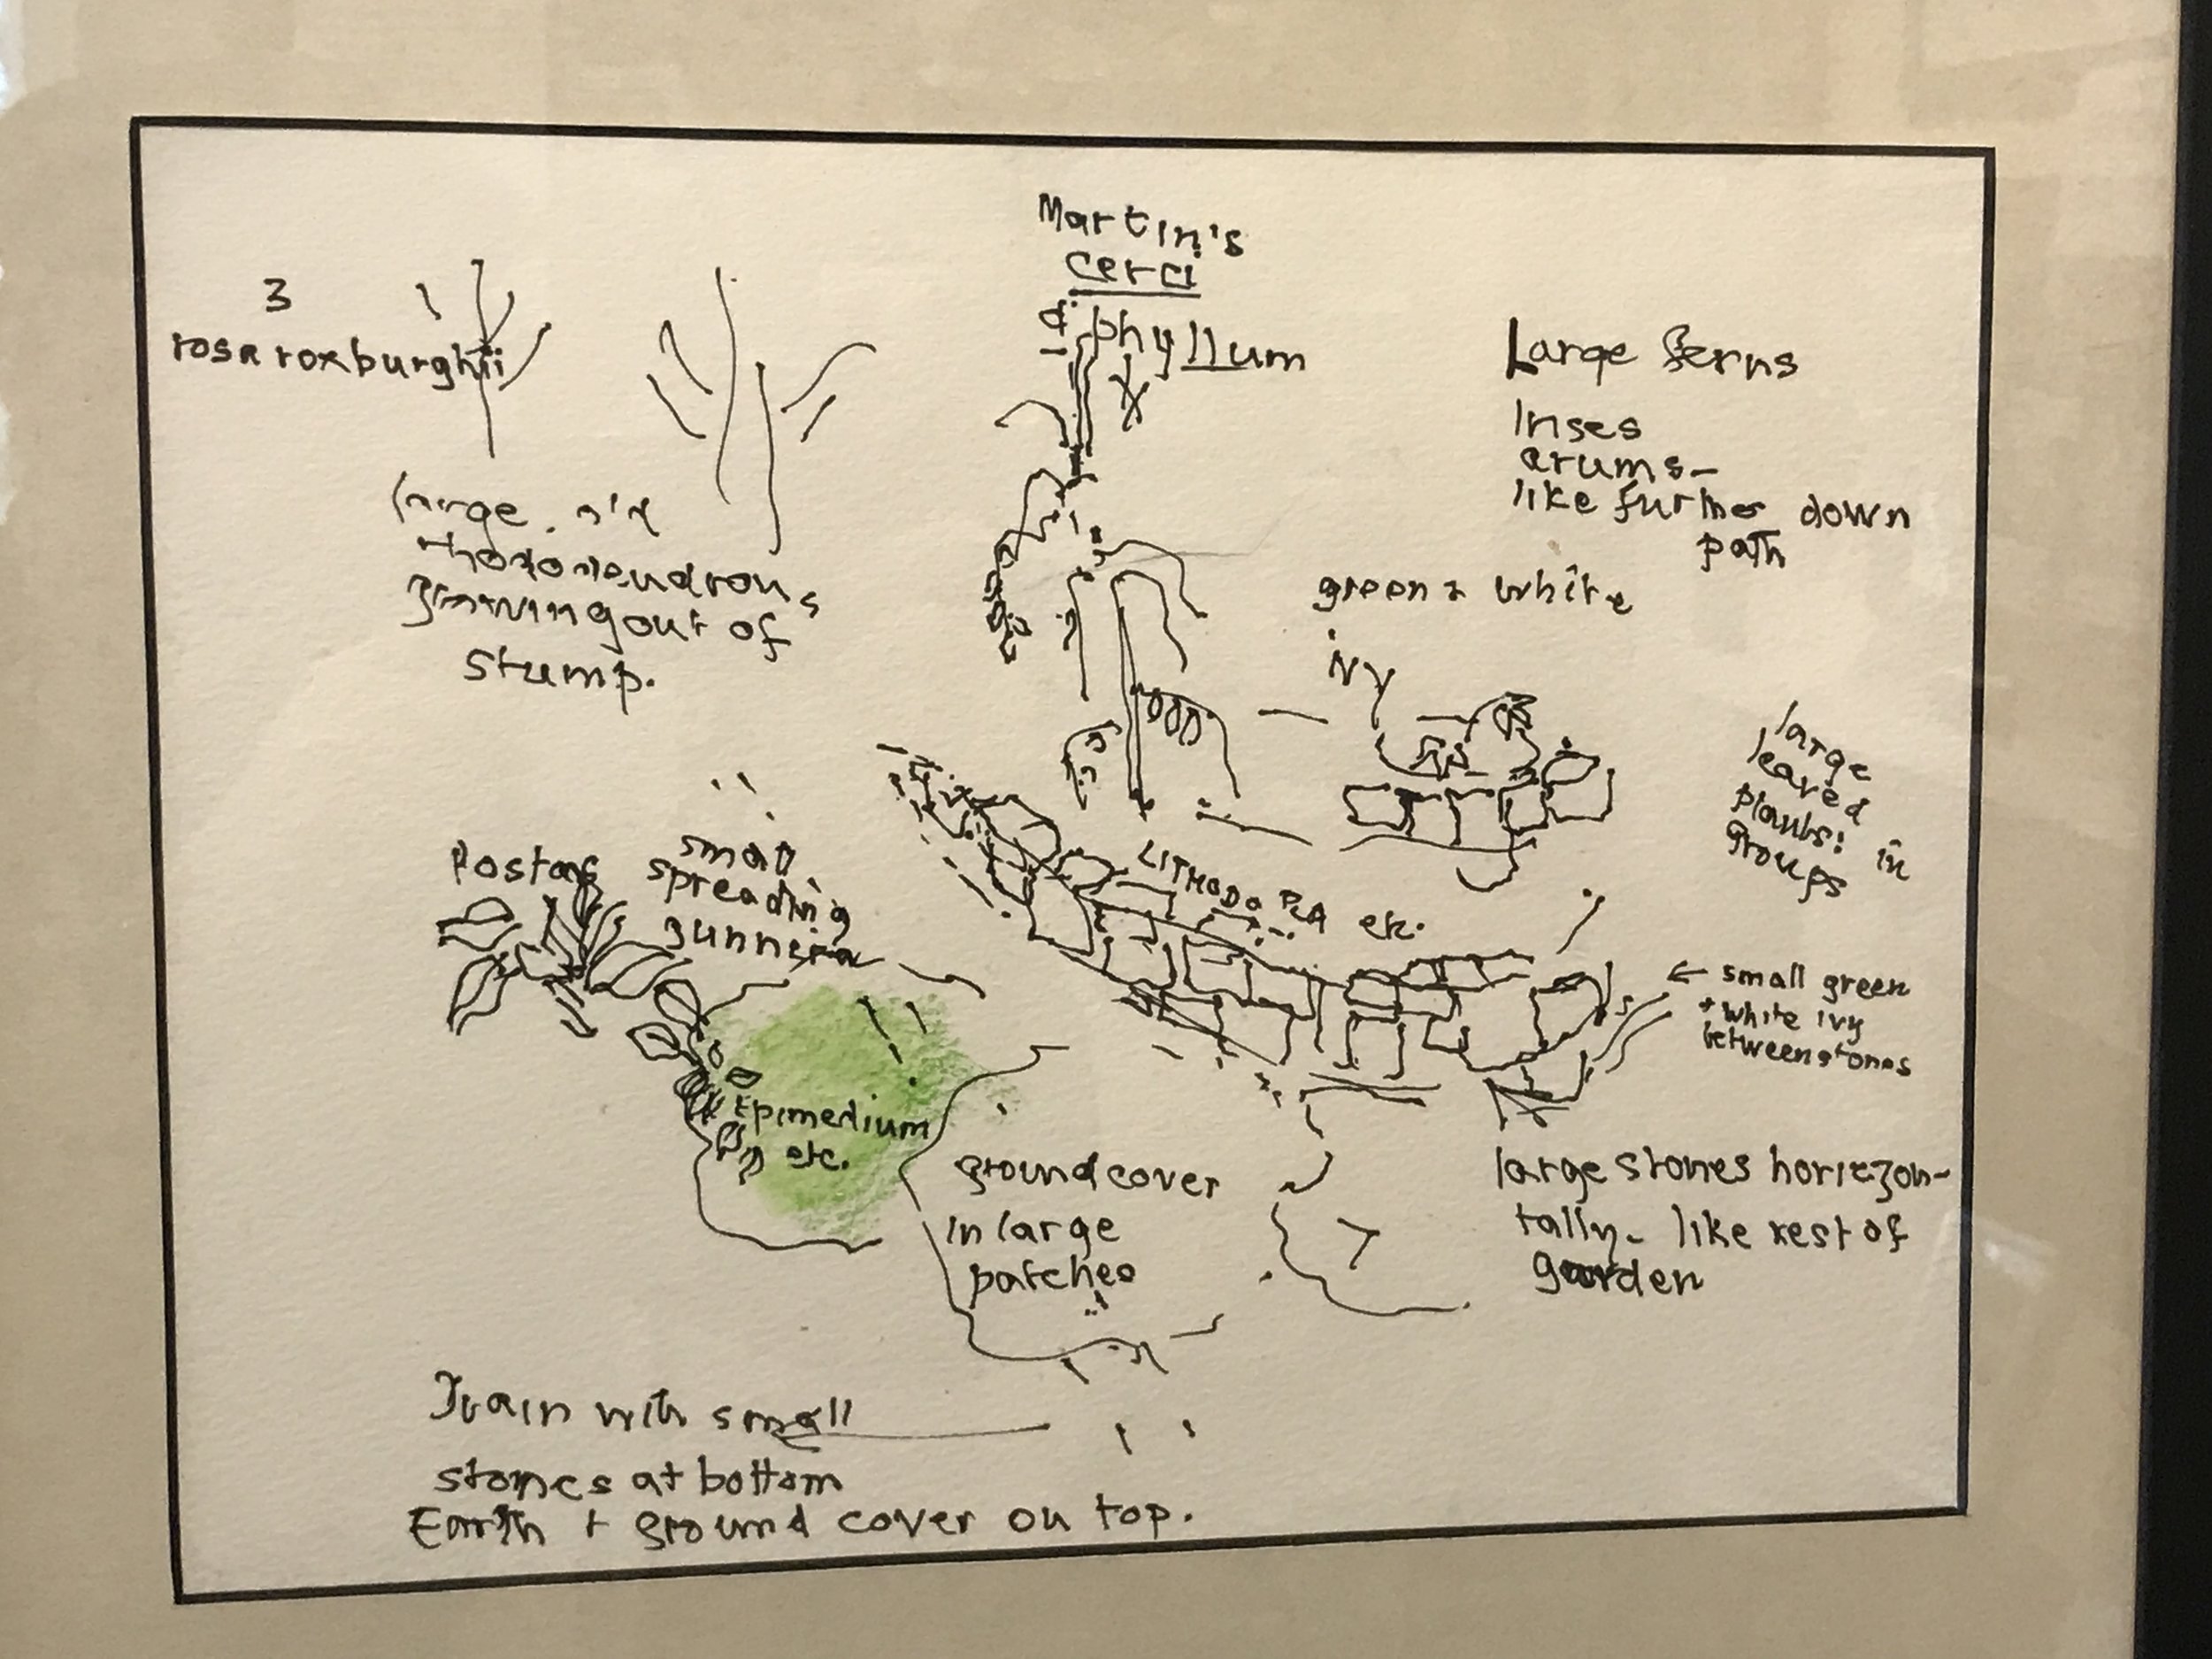 Martin's
cerci
d. phyllum
3
rosa roxburghii
Large ferns
Irises
arums-
like further down
path
large. old
rhododendrons
growing out of
stump.
green + white
ivy
large
leaved
plants: in
groups
Hostas
small
spreading
gunnera
LITHODORA etc.
← small green
+ white ivy
between stones
Epimedium
etc.
groundcover
in large
patches
large stones horizon-
tally- like rest of
garden
Drain with small
stones at bottom
Earth + ground cover on top.